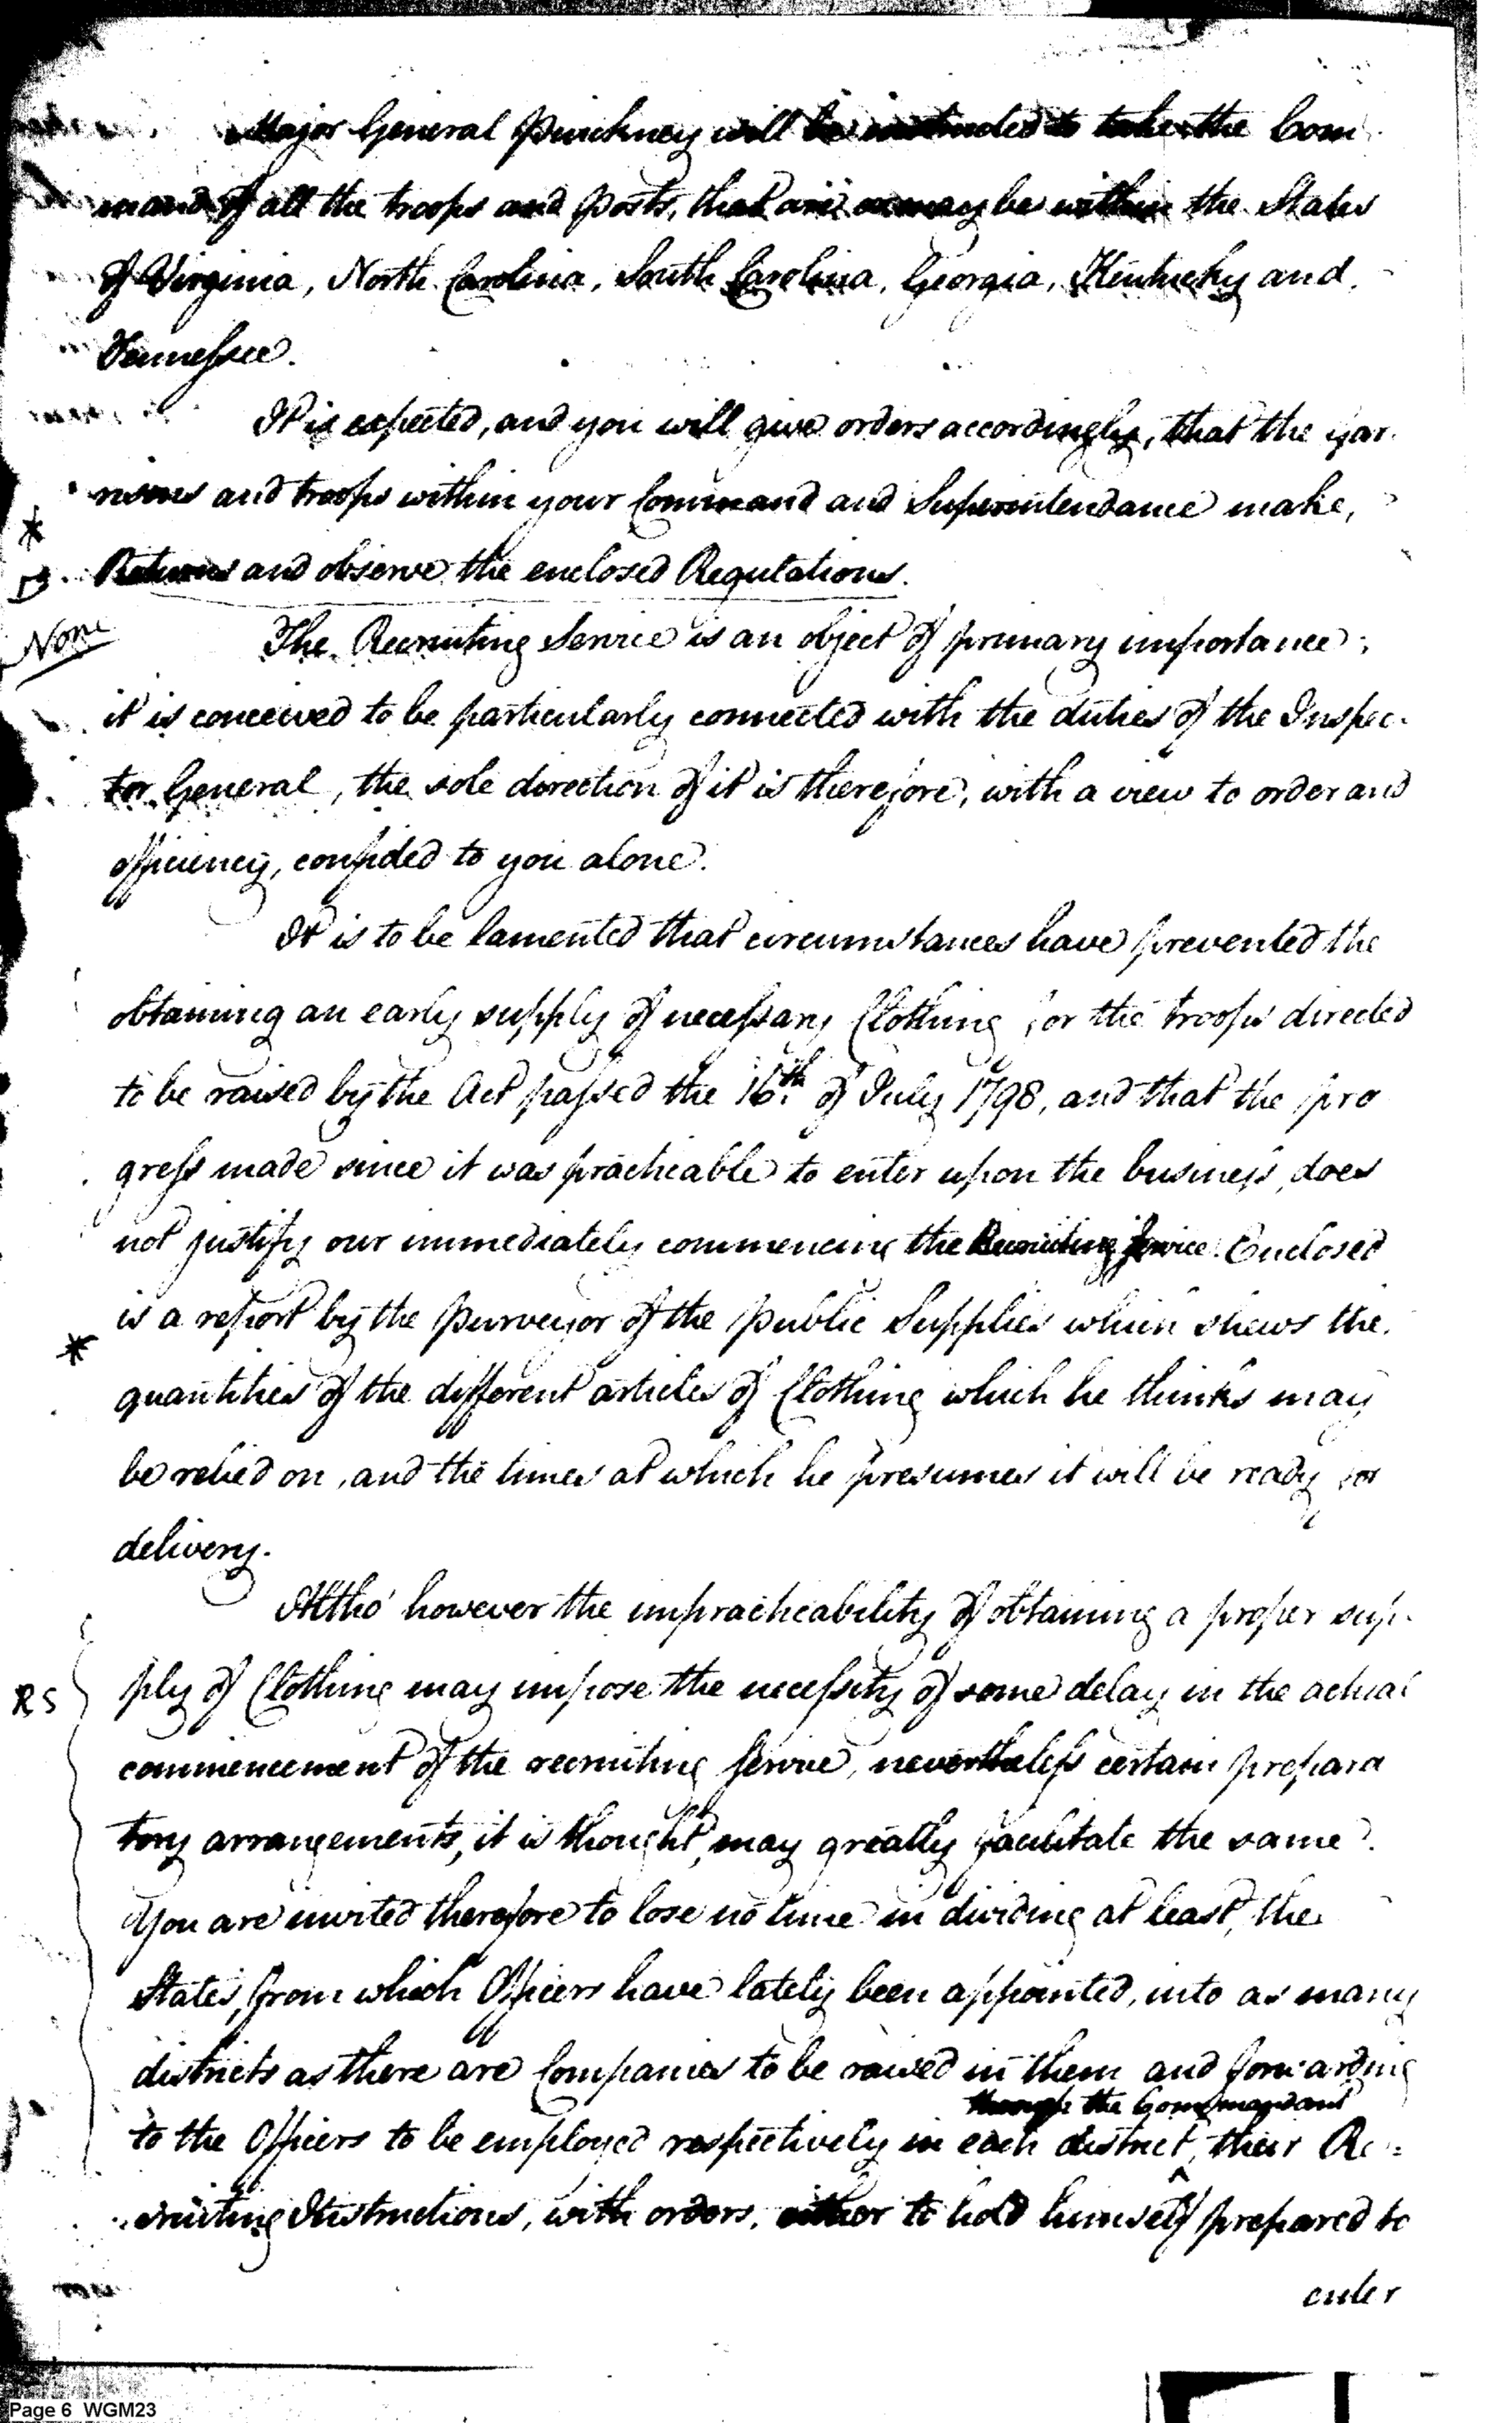 Major General Pinckney will be instructed to take the Com
mand of all the troops and posts, that are or may be within the States
of Virginia, North Carolina, South Carolina, Georgia, Kentucky and
Tennessee.
It is expected, and you will give orders accordingly, that the gar
risons and troops within your Command and Superintendance make,
*
B. Returns and observe the enclosed Regulations.
None
The Recruiting Service is an object of primary importance;
it is conceived to be particularly connected with the duties of the Inspec-
tor General, the sole direction of it is therefore, with a view to order and
efficiency, confided to you alone.
It is to be lamented that circumstances have prevented the
obtaining an early supply of necessary Clothing for the troops directed
to be raised by the Act passed the 16th of July 1798, and that the pro
gress made since it was practicable to enter upon the business, does
not justify our immediately commencing the Recruiting Service. Enclosed
is a report by the Purveyor of the Public Supplies which shews the
*
quantities of the different articles of Clothing which he thinks may
be relied on, and the times at which he presumes it will be ready for
delivery.
Altho' however the impracticability of obtaining a proper sup-
RS
ply of Clothing may impose the necessity of some delay in the actual
commencement of the recruiting Service, nevertheless certain prepara
tory arrangements, it is thought, may greatly facilitate the same.
You are invited therefore to lose no time in dividing at least, the
States, from which Officers have lately been appointed, into as many
districts as there are Companies to be raised in them and forwarding
through the Commandant
to the Officers to be employed respectively in each district, their Re=
cruiting Instructions, with orders, either to hold himself prepared to
enter
Page 6 WGM23